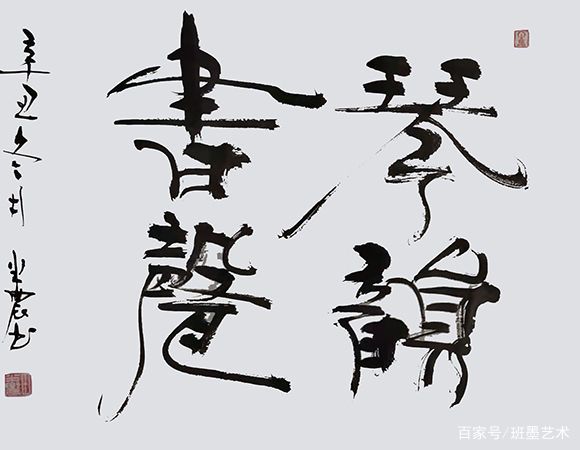 琴韻
書聲
辛丑冬
百家号/班墨艺术